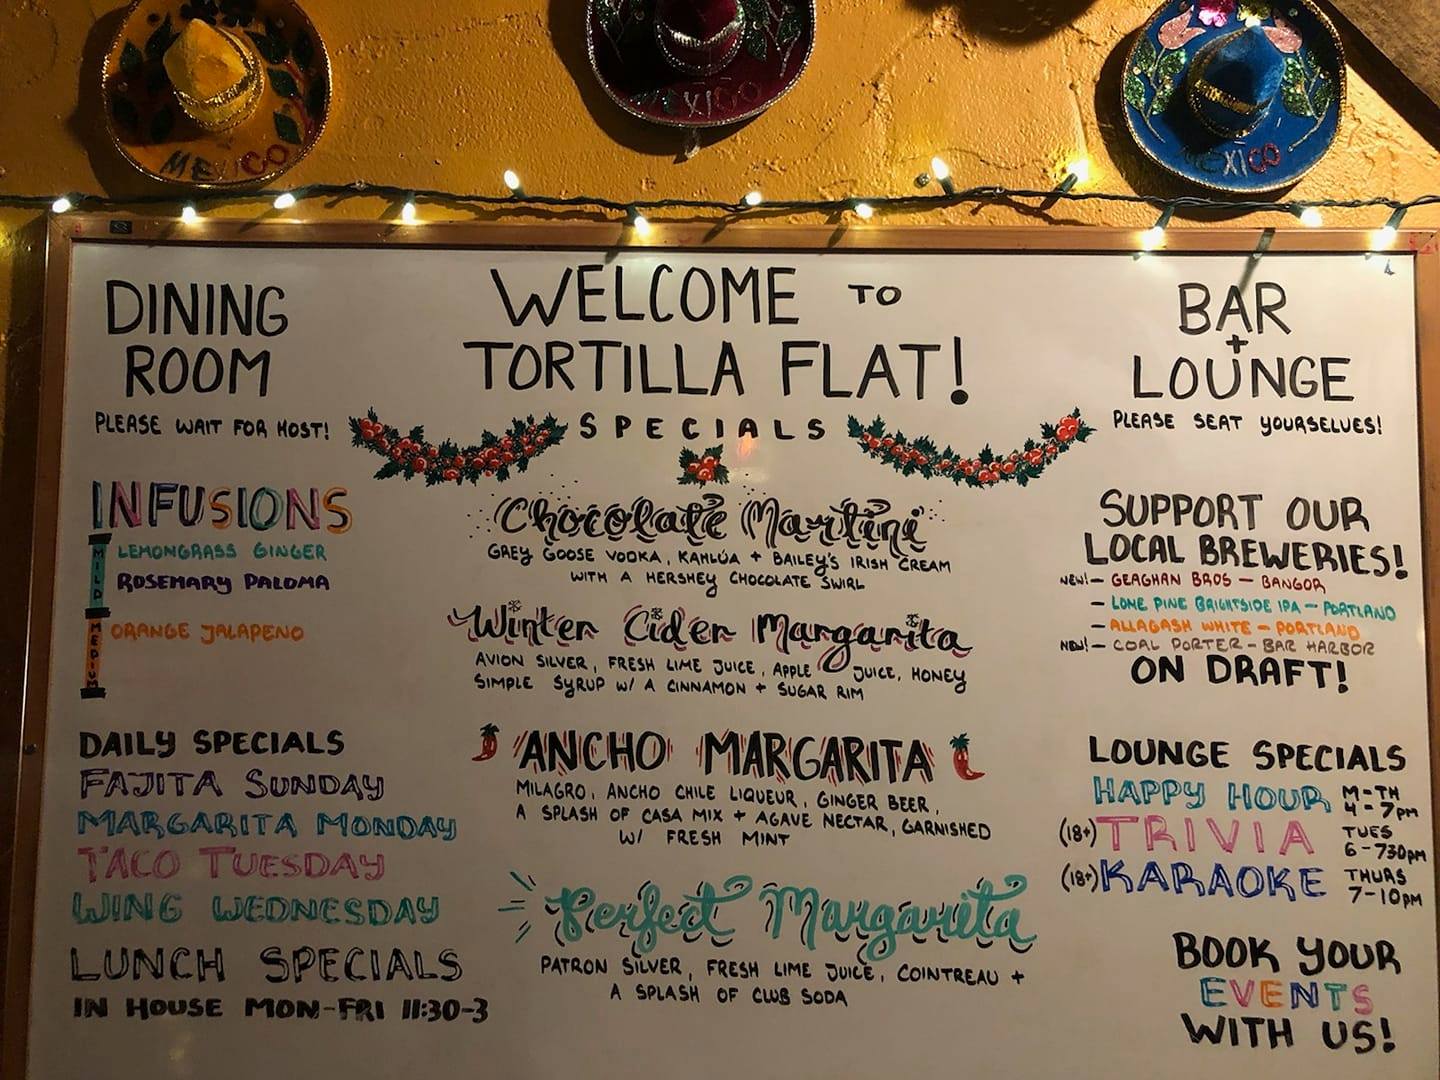 MEXICO
MEXICO
MEXICO
DINING
ROOM
PLEASE WAIT FOR HOST!
INFUSIONS
MILD
LEMONGRASS GINGER
ROSEMARY PALOMA
MEDIUM
ORANGE JALAPENO
DAILY SPECIALS
FAJITA SUNDAY
MARGARITA MONDAY
TACO TUESDAY
WING WEDNESDAY
LUNCH SPECIALS
IN HOUSE MON-FRI 11:30-3
WELCOME TO
TORTILLA FLAT!
SPECIALS
Chocolate Martini
GREY GOOSE VODKA, KAHLÚA + BAILEY'S IRISH CREAM
WITH A HERSHEY CHOCOLATE SWIRL
Winter Cider Margarita
AVION SILVER, FRESH LIME JUICE, APPLE JUICE, HONEY
SIMPLE SYRUP W/ A CINNAMON + SUGAR RIM
ANCHO MARGARITA
MILAGRO, ANCHO CHILE LIQUEUR, GINGER BEER,
A SPLASH OF CASA MIX + AGAVE NECTAR, GARNISHED
W/ FRESH MINT
Perfect Margarita
PATRON SILVER, FRESH LIME JUICE, COINTREAU +
A SPLASH OF CLUB SODA
BAR
+
LOUNGE
PLEASE SEAT YOURSELVES!
SUPPORT OUR
LOCAL BREWERIES!
NEW! - GEAGHAN BROS - BANGOR
- LONE PINE BRIGHTSIDE IPA - PORTLAND
- ALLAGASH WHITE - PORTLAND
NEW! - COAL PORTER - BAR HARBOR
ON DRAFT!
LOUNGE SPECIALS
HAPPY HOUR M-TH
4-7pm
(18+) TRIVIA TUES
6-730pm
(18+) KARAOKE THURS
7-10pm
BOOK YOUR
EVENTS
WITH US!